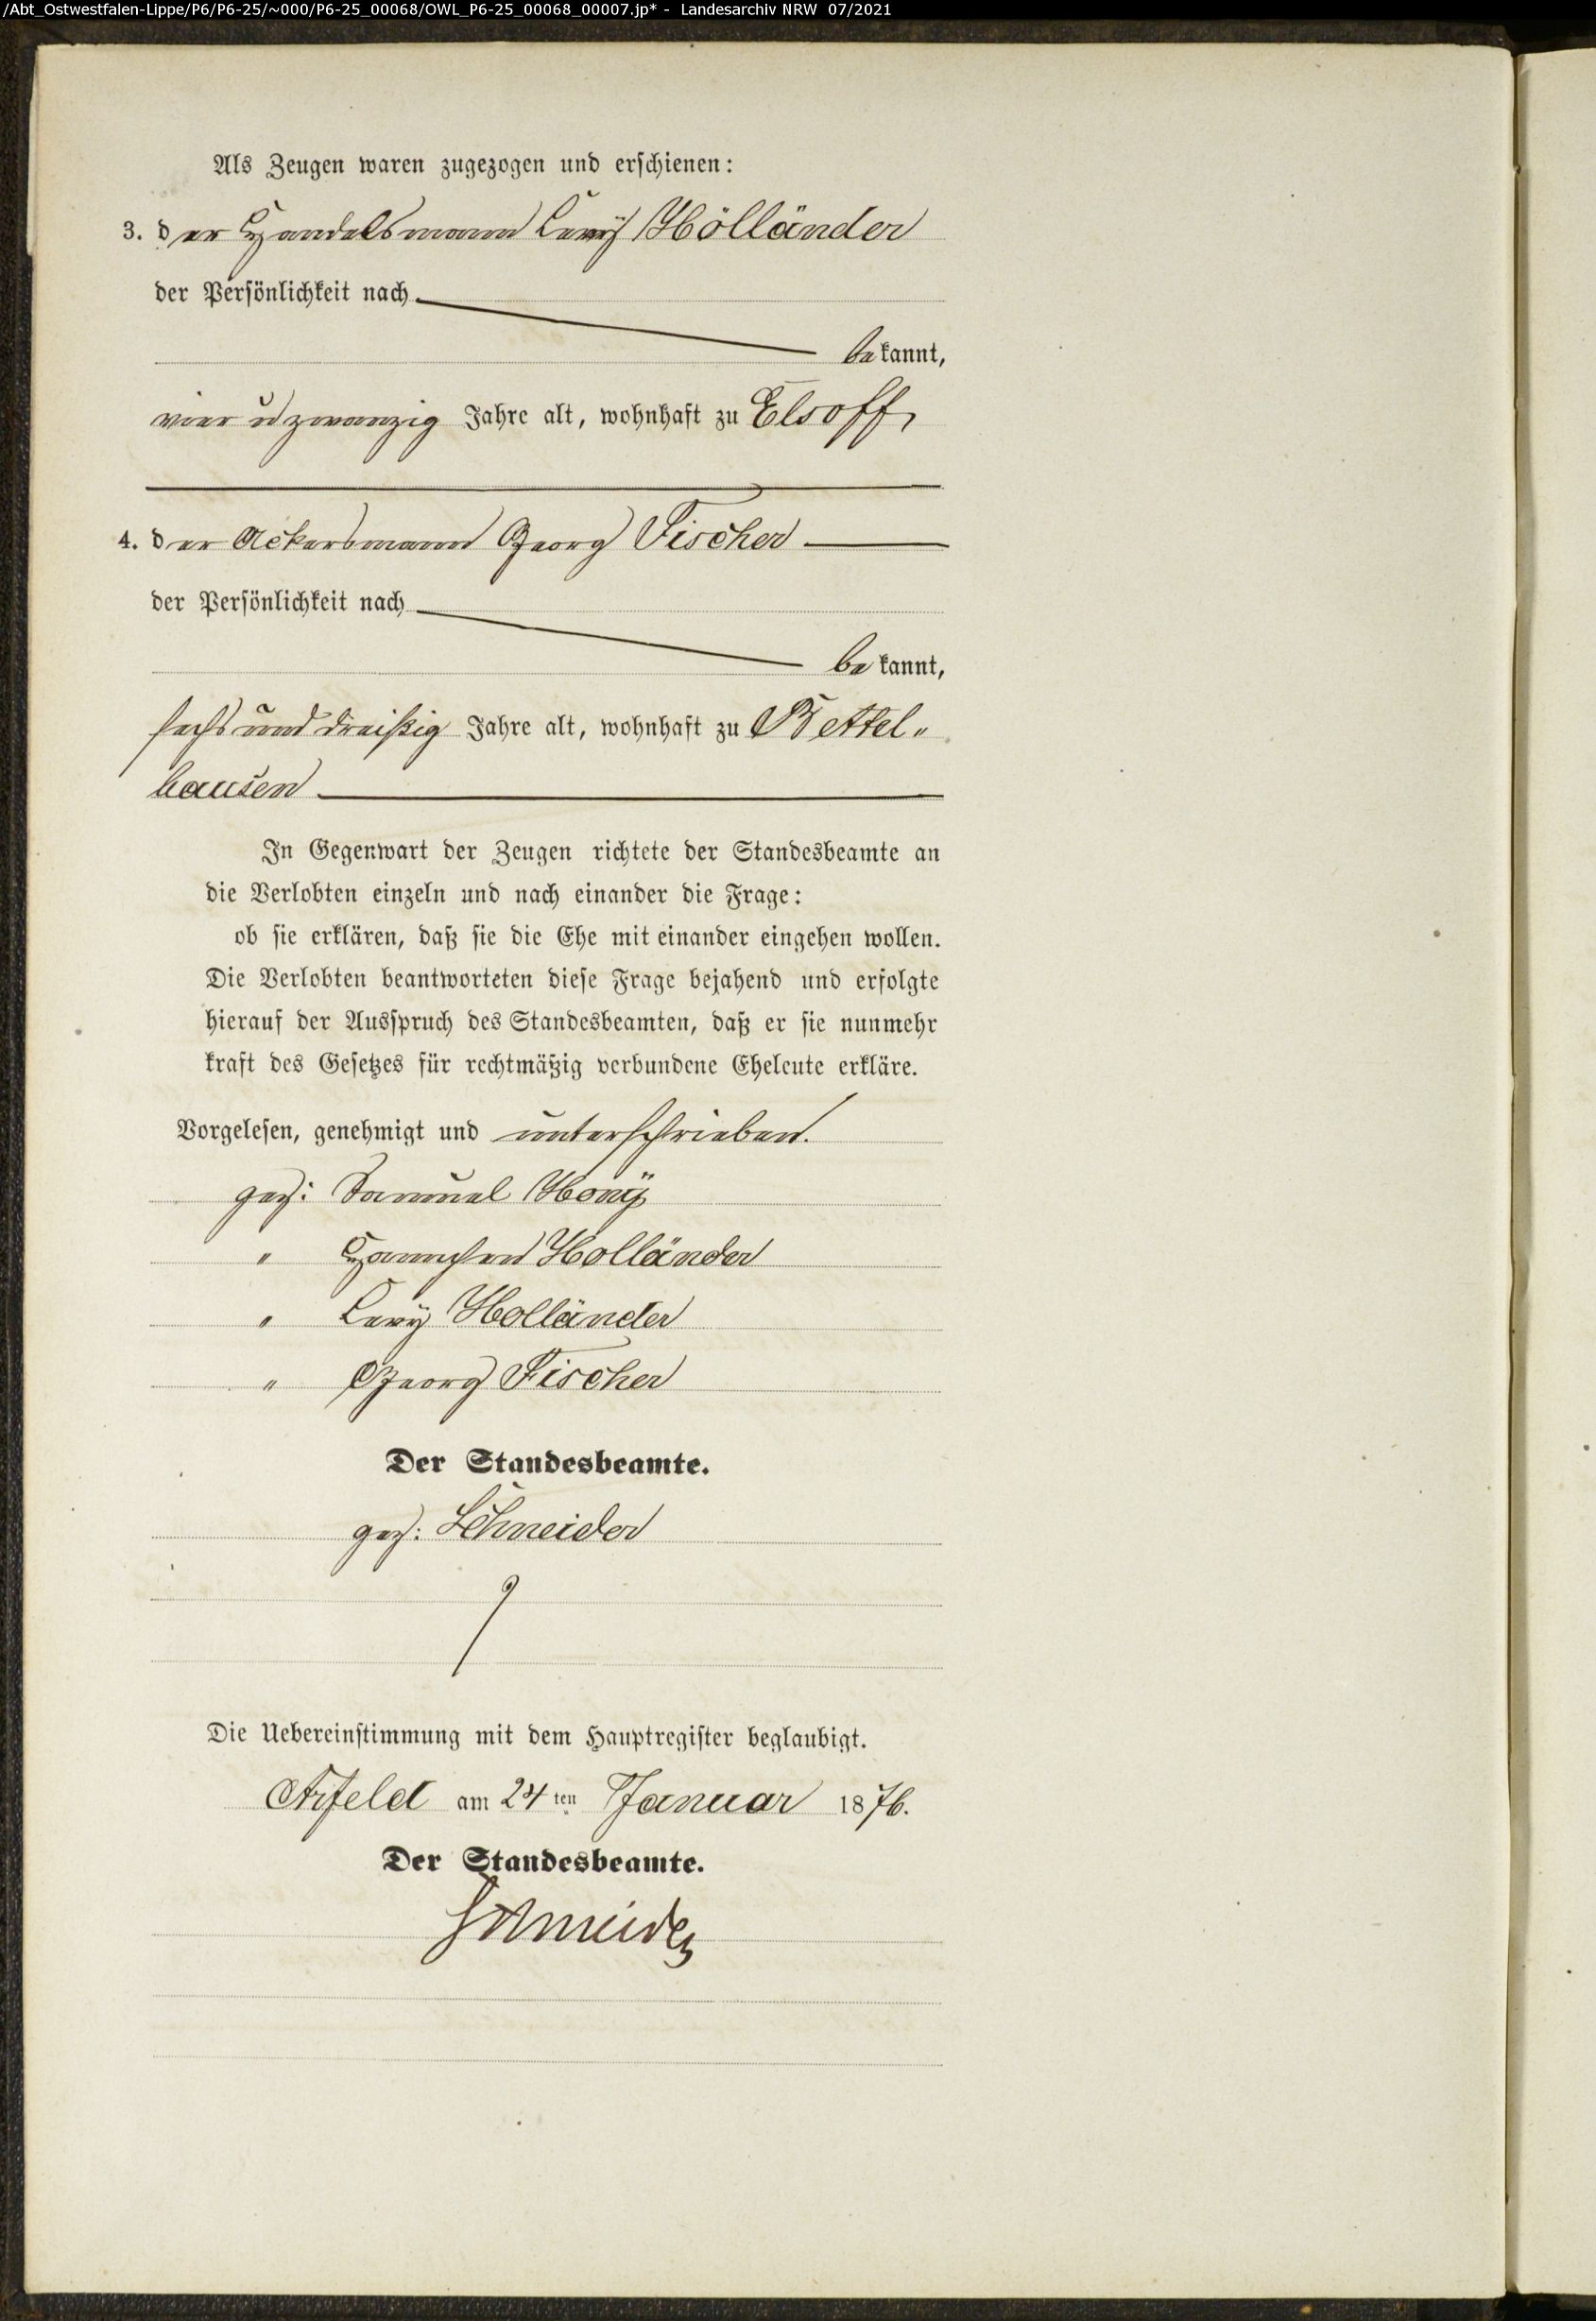 /Abt_Ostwestfalen-Lippe/P6/P6-25/~000/P6-25_00068/OWL_P6-25_00068_00007.jp* - Landesarchiv NRW 07/2021
Als Zeugen waren zugezogen und erschienen:
3. der Handelsmann Levÿ Hölländer
der Persönlichkeit nach
bekannt,
vier u zwanzig Jahre alt, wohnhaft zu Elsoff,
4. der Ackersmann Georg Fischer
der Persönlichkeit nach
bekannt,
sechs und dreißig Jahre alt, wohnhaft zu Bettel„
hausen
In Gegenwart der Zeugen richtete der Standesbeamte an
die Verlobten einzeln und nach einander die Frage:
ob sie erklären, daß sie die Ehe mit einander eingehen wollen.
Die Verlobten beantworteten diese Frage bejahend und erfolgte
hierauf der Ausspruch des Standesbeamten, daß er sie nunmehr
kraft des Gesetzes für rechtmäßig verbundene Eheleute erkläre.
Vorgelesen, genehmigt und unterschrieben.
gez: Samuel Honÿ
" Hannchen Holländer
" Levÿ Holländer
" Georg Fischer
Der Standesbeamte.
gez: Schneider
Die Uebereinstimmung mit dem Hauptregister beglaubigt.
Arfeld am 24ten Januar 1876.
Der Standesbeamte.
Schneider